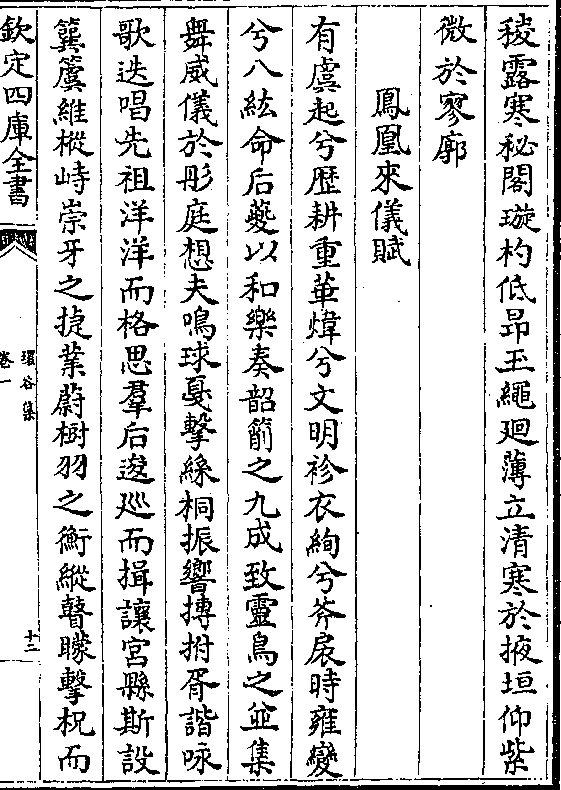 稜露寒秘閣璇杓低昂玉繩廻薄立清寒於掖垣仰紫
微於寥廓
鳳凰來儀賦
有虞起兮歴耕重華煒兮文明袗衣絢兮斧扆時雍變
兮八紘命后夔以和樂奏韶箾之九成致靈鳥之並集
舞威儀於彤庭想夫鳴球戛擊絲桐振響搏拊胥諧咏
歌迭唱先祖洋洋而格思羣后逡廵而揖讓宫縣斯設
簨簴維樅峙崇牙之捷業蔚樹羽之衡縱瞽矇擊柷而
欽定四庫全書
環谷集
卷一
十三